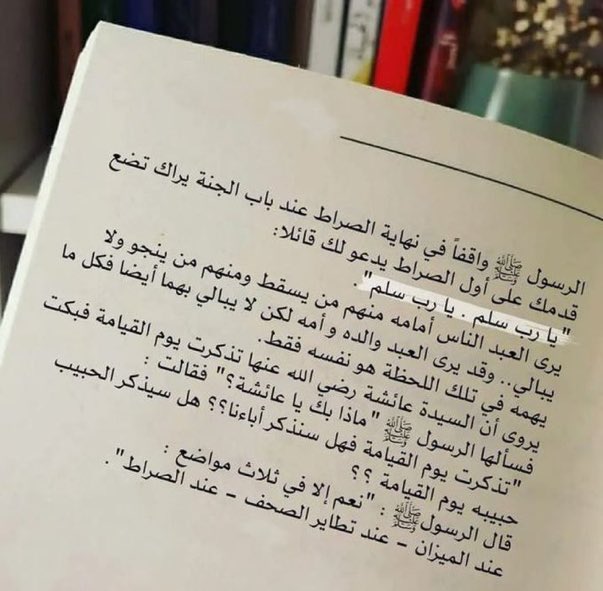 الرسول ﷺ واقفاً في نهاية الصراط عند باب الجنة يراك تضع
قدمك على أول الصراط يدعو لك قائلا:
"يا رب سلم . يا رب سلم"
يرى العبد الناس أمامه منهم من يسقط ومنهم من ينجو ولا
يبالي.. وقد يرى العبد والده وأمه لكن لا يبالي بهما أيضا فكل ما
يهمه في تلك اللحظة هو نفسه فقط.
يروى أن السيدة عائشة رضي الله عنها تذكرت يوم القيامة فبكت
فسألها الرسول ﷺ "ماذا بك يا عائشة؟" فقالت :
"تذكرت يوم القيامة فهل سنذكر أباءنا؟؟ هل سيذكر الحبيب
حبيبه يوم القيامة ؟؟
قال الرسول ﷺ : "نعم إلا في ثلاث مواضع :
عند الميزان – عند تطاير الصحف – عند الصراط" .